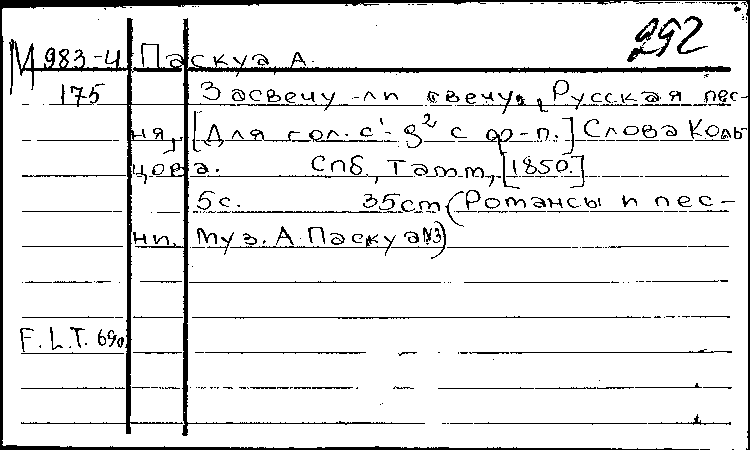 292
М 983-4 Паскуа, А.
175 Засвечу-ли свечу. Русская пес-
ня, [Для гол. c¹-g² с ф-п.] Слова Коль
цова. Спб., Гамм, [1850.]
5с. 35cm (Романсы и пес-
ни. Муз. А. Паскуа №3)
F. L. T. 690